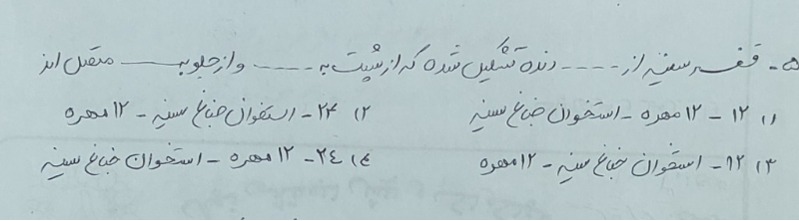 ۵- قفسه سینه از ---- دنده تشکیل شده که از پشت به ---- و از جلو به ____ متصل اند
۱) ۱۲ - ۱۲ مهره - استخوان جناغ سینه ۲) ۲۴ - استخوان جناغ سینه - ۱۲ مهره
۳) ۱۲ - استخوان جناغ سینه - ۱۲ مهره ۴) ۲۴ - ۱۲ مهره - استخوان جناغ سینه